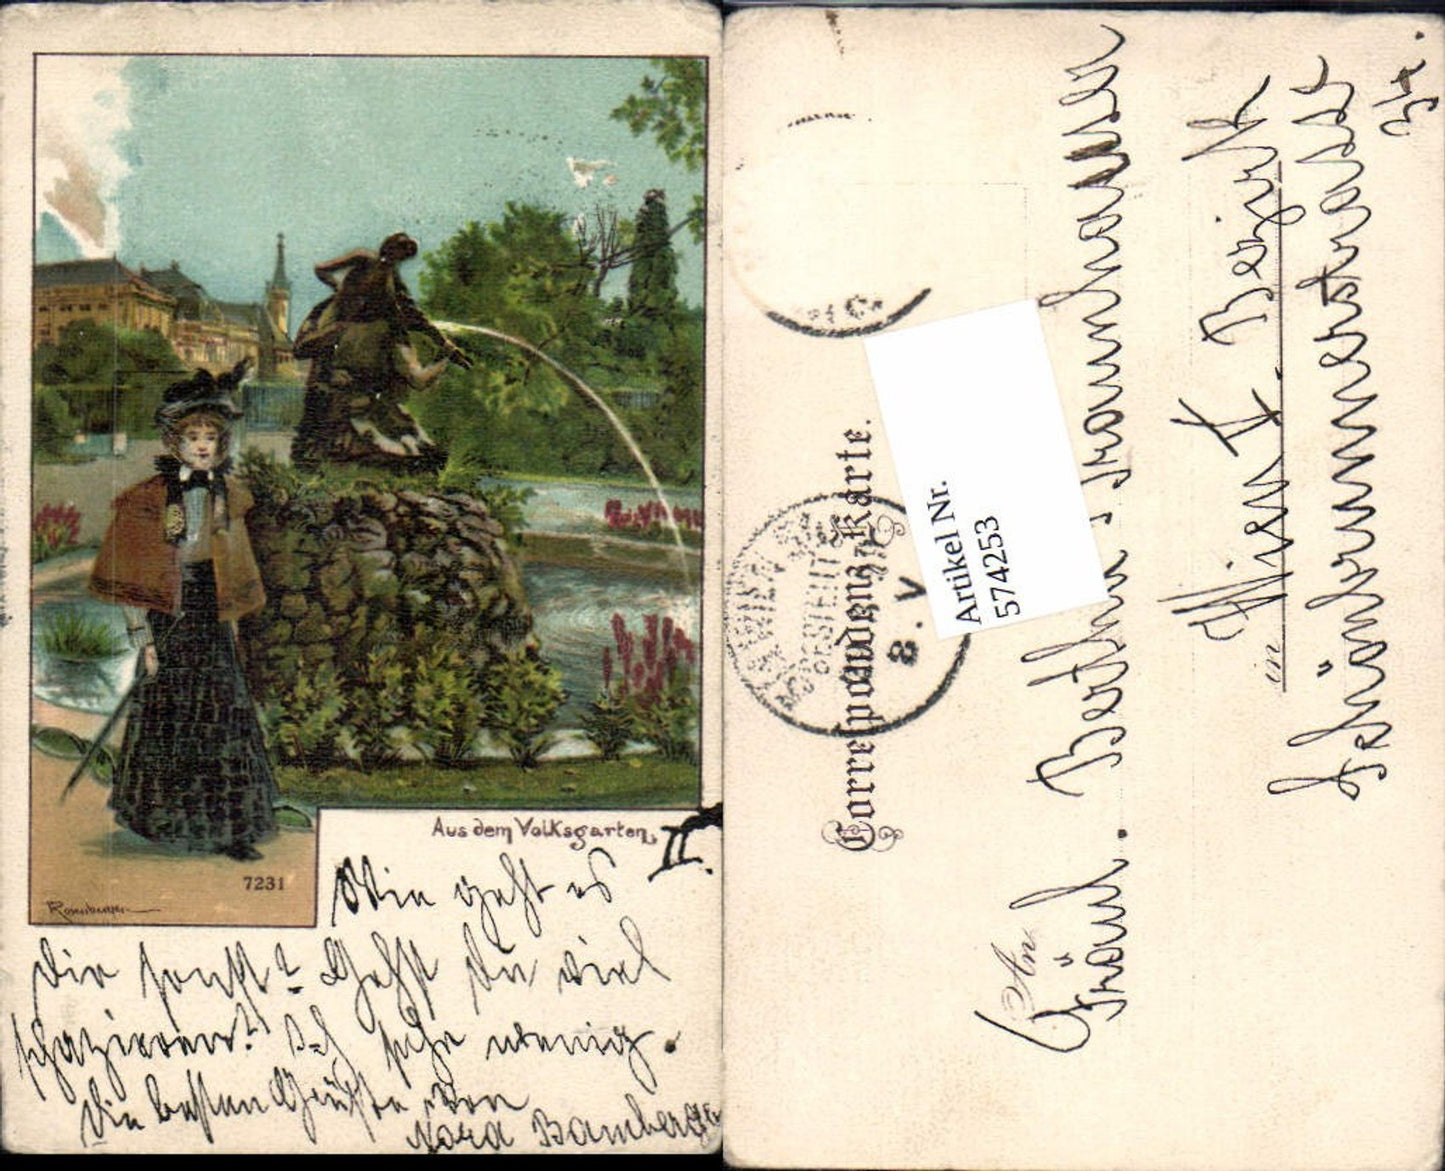 Aus dem Volksgarten.
II.
7231
Wie geht es
Dir sonst? Gehst Du viel
spazieren? Ich sehr wenig.
Die besten Grüße von
Nora Bamberger
Correspondenz-Karte.
WIEN
BESTELLT
8. V
Artikel Nr.
574253
An
Fräul. Bertha
Wien X. Bezirk
in